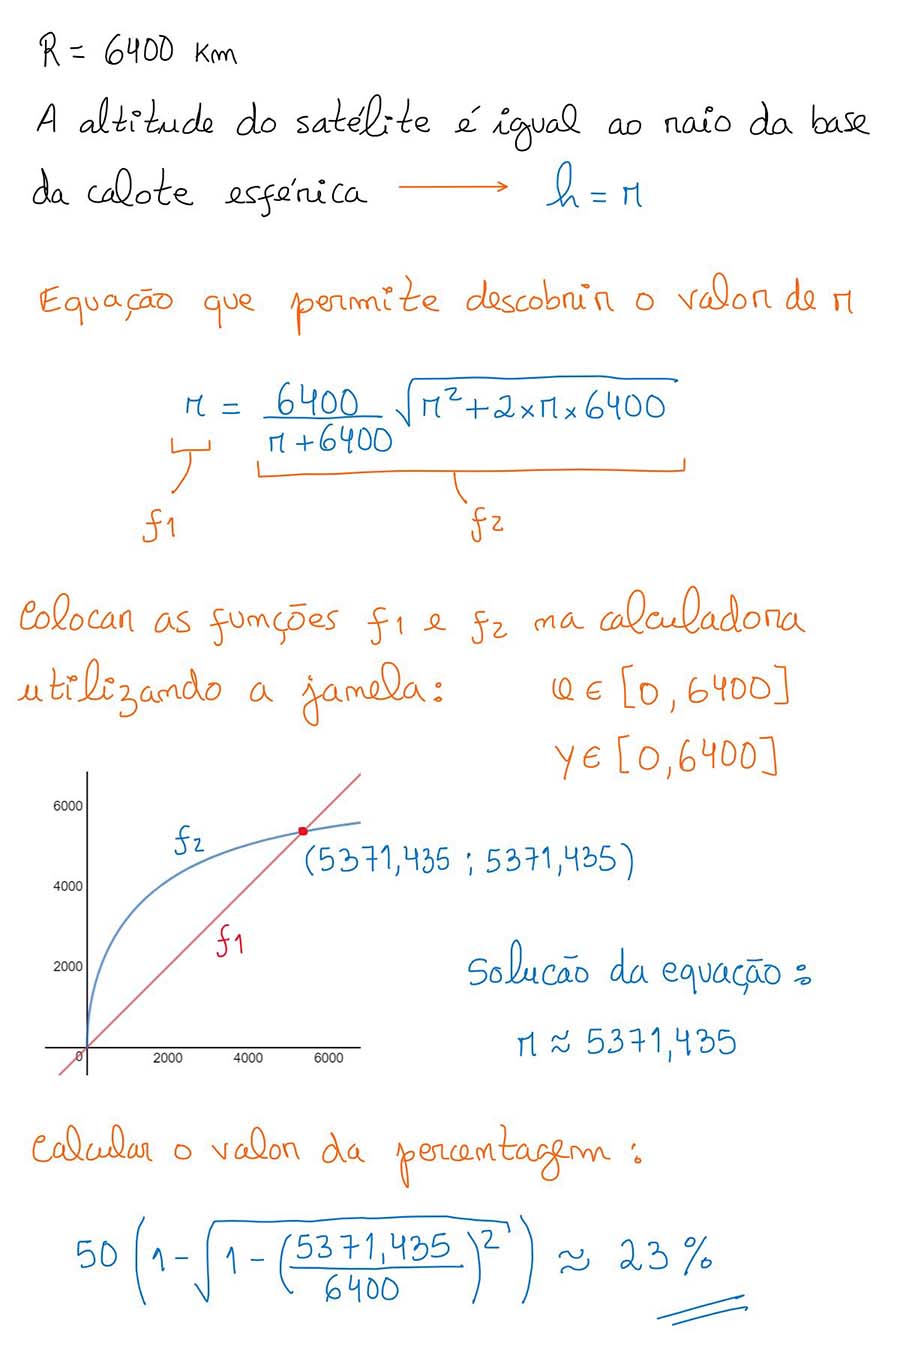 R = 6400 km
A altitude do satélite é igual ao raio da base
da calote esférica → h = r
Equação que permite descobrir o valor de r
r = 6400/(r + 6400) √(r² + 2×r×6400)
f1 f2
Colocar as funções f1 e f2 na calculadora
utilizando a janela: x ∈ [0, 6400]
y ∈ [0, 6400]
6000
f2
(5371,435 ; 5371,435)
4000
f1
2000
Solucão da equação:
0 2000 4000 6000
r ≈ 5371,435
Calcular o valor da percentagem:
50 (1 - √(1 - (5371,435/6400)²)) ≈ 23 %